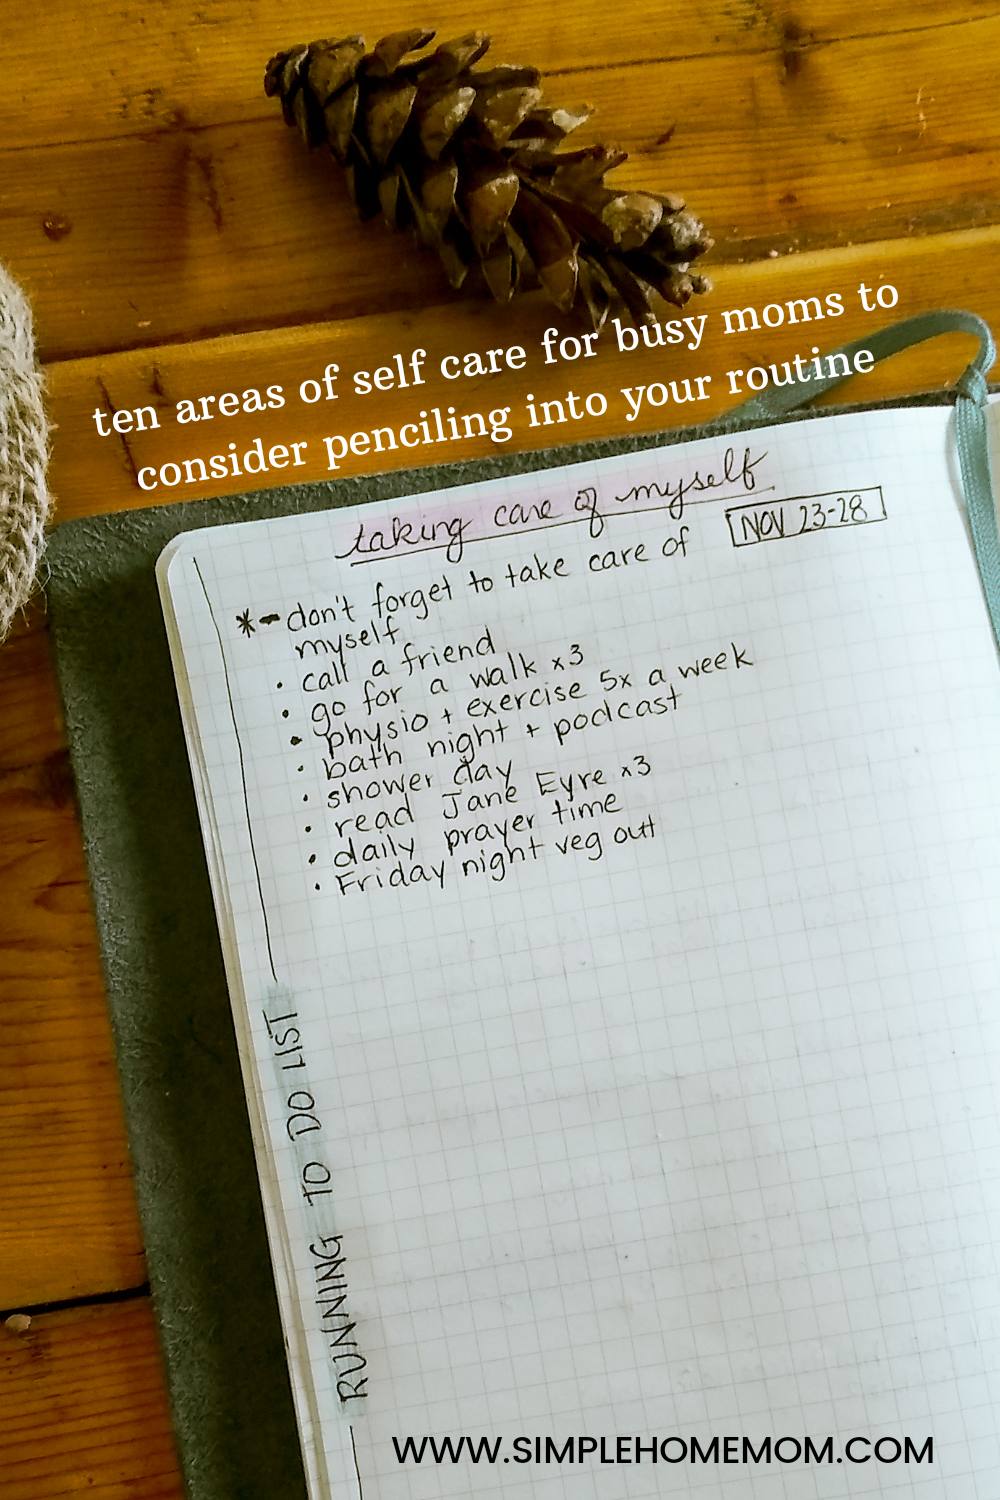 ten areas of self care for busy moms to
consider penciling into your routine
taking care of myself
NOV 23-28
*- don't forget to take care of
myself
• call a friend
• go for a walk x3
• physio + exercise 5x a week
• bath night + podcast
• shower day
• read Jane Eyre x3
• daily prayer time
• Friday night veg out
RUNNING TO DO LIST
WWW.SIMPLEHOMEMOM.COM